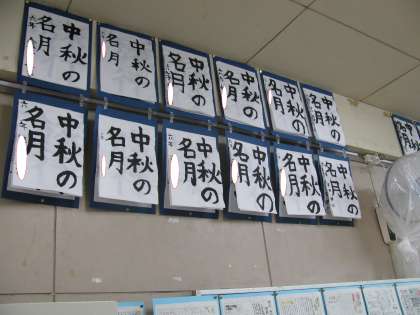 中秋の
名月
六年
中秋の
名月
中秋の
名月
六年
中秋の
名月
中秋の
名月
中秋の
名月
中秋の
名月
六年
中秋の
名月
中秋の
名月
六年
中秋の
名月
中秋の
名月
中秋の
名月